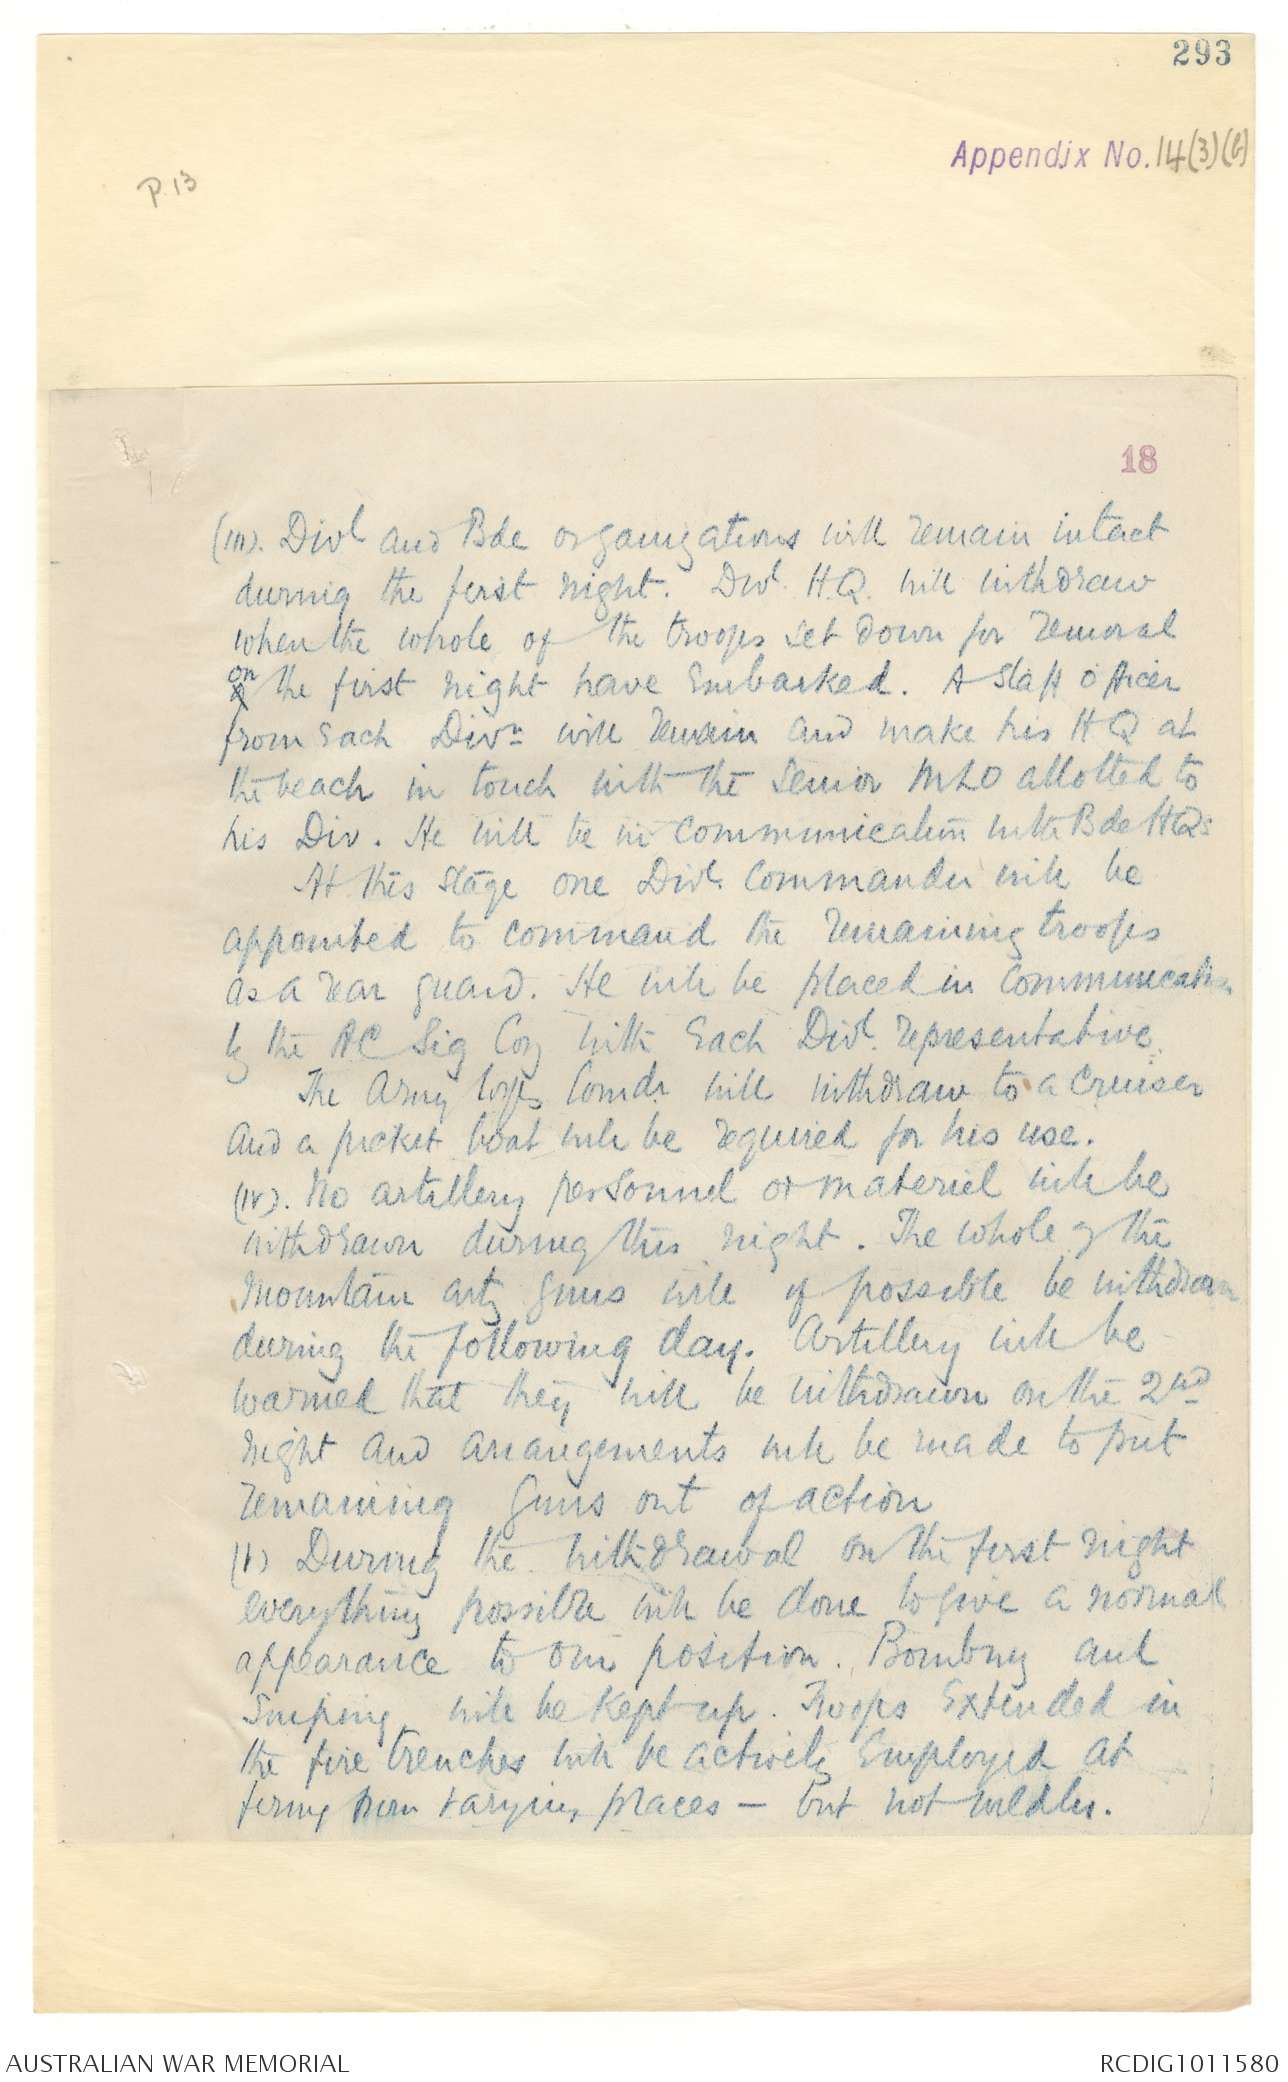 293
Appendix No. 14(3)(b)
p. 13
18
(III). Divl and Bde organizations will remain intact
during the first night. Divl. H.Q. will withdraw
when the whole of the troops set down for removal
on the first night have Embarked. A Staff officer
from Each Divn will remain and make his H Q at
the beach in touch with the Senior MLO allotted to
his Div. He will be in communication with Bde HQs
At this stage one Divl. Commander will be
appointed to command the remaining troops
as a rear guard. He will be placed in Communication
by the AC Sig Coy with Each Divl. representative.
The Army Corps Comdr will withdraw to a Cruiser
and a picket boat will be required for his use.
(IV). No artillery personnel or materiel will be
withdrawn during this night. The whole of the
Mountain arty guns will if possible be withdrawn
during the following day. Artillery will be
warned that they will be withdrawn on the 2nd
night and arrangements will be made to put
remaining guns out of action
(V) During the withdrawal on the first night
everything possible will be done to give a normal
appearance to our position. Bombing and
Sniping will be kept up. Troops Extended in
the fire trenches will be actively Employed at
firing from varying places — but not wildly.
AUSTRALIAN WAR MEMORIAL
RCDIG1011580